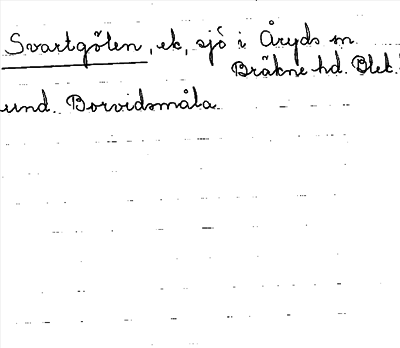 Svartgölen, ek, sjö i Åryds sn.
Bräkne hd. Blek.
und. Borvidsmåla.